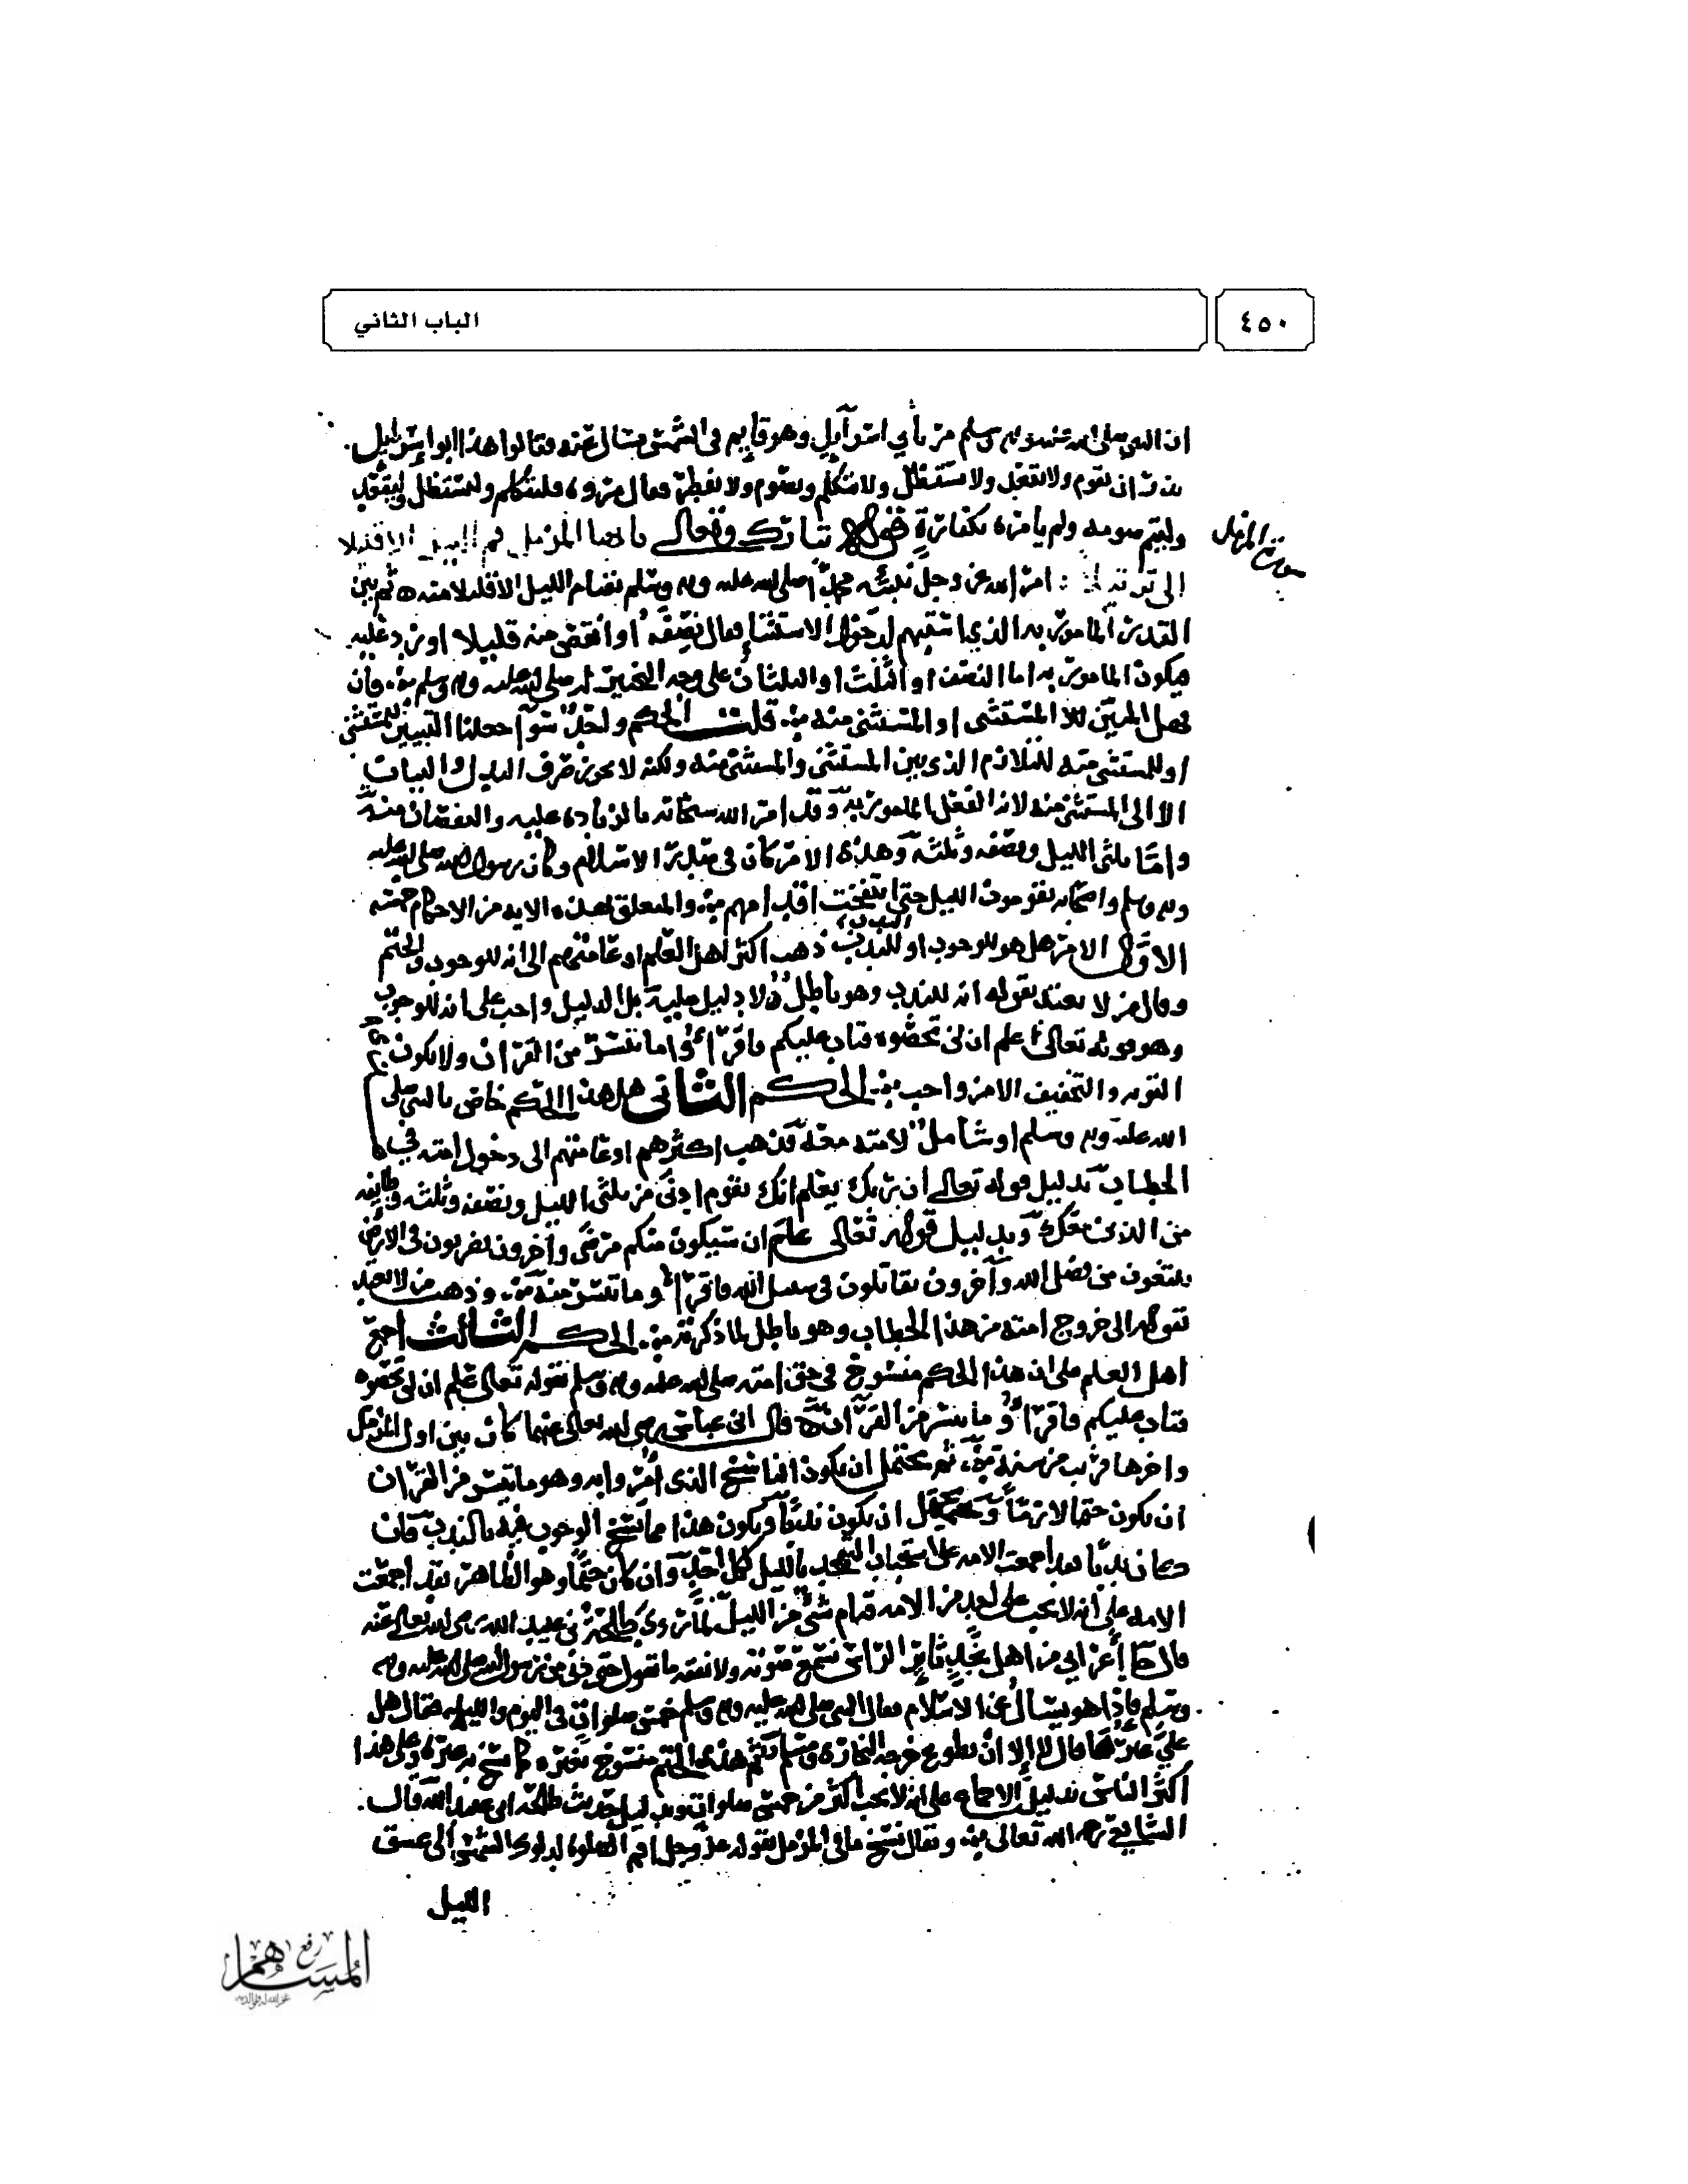 ٤٥٠
الباب الثاني
ان النبي صلى الله عليه وسلم مر بأبي اسرآئيل وهو قايم في الشمس فسال عنه فقالوا هذا ابو اسرايل
نذر ان يقوم ولا يقعد ولا يستظل ولا يتكلم ويصوم ولا يفطر فقال مروه فليتكلم وليستظل وليقعد
وليتم صومه ولم يأمره بكفارة قوله تبارك وتعالى يا ايها المزمل قم الليل الا قليلا
سورة المزمل
الى ترتيلا امر الله عز وجل نبيه محمدا صلى الله عليه وسلم بقيام الليل الا قليلا منه ثم بين
القدر المأمور به الذي استبهم لدخول الاستثناء فقال نصفه او انقص منه قليلا او زد عليه
فيكون المأمور به اما النصف او الثلث او الثلثان على وجه التخيير له صلى الله عليه وسلم فان
قيل المبين للا المستثنى او المستثنى منه قلت الحكم واحد سوآ جعلنا التبيين للمستثنى
او للمستثنى منه للتلازم الذي بين المستثنى والمستثنى منه ولكنه لا يجوز صرف البدل والبيان
الا الى المستثنى منه لانه الفعل المامور به وقد امر الله سبحانه بالزيادة عليه والنقصان منه
وامـا ثلثي الليل ونصفه وثلثه وهذا الامر كان في مبتدا الاسلام وكان رسول الله صلى الله عليه
وسلم واصحابه يقومون الليل حتى انتفخت اقدامهم والمتعلق بهذه الايه من الاحكام خمسه
الاول الامر هل هو للوجوب او للندب ذهب اكثر اهل العلم او عامتهم الى انه للوجوب والحتم
وقال من لا يعتد بقوله انه للندب وهو باطل لا دليل عليه بل الدليل واجب على انه للوجوب
وهو قوله تعالى علم ان لن تحصوه فتاب عليكم فاقرأوا ما تيسر من القرآن ولا يكون
التوبه والتخفيف الا من واجب الحكم الثاني هل هذا الحكم خاص بالنبي صلى
الله عليه وسلم او شامل لامته معه فذهب اكثرهم او عامتهم الى دخول امته في
الخطاب بدليل قوله تعالى ان ربك يعلم انك تقوم ادنى من ثلثي الليل ونصفه وثلثه وطايفه
من الذين معك وبدليل قوله تعالى علم ان سيكون منكم مرضى وآخرون يضربون في الارض
يبتغون من فضل الله وآخرون يقاتلون في سبيل الله فاقرأوا ما تيسر منه وذهب من لا يعتد
بقوله الى خروج امته من هذا الخطاب وهو باطل لما ذكرته الحكم الثالث اجمع
اهل العلم على ان هذا الحكم منسوخ في حق امته صلى الله عليه وسلم بقوله تعالى علم ان لن تحصوه
فتاب عليكم فاقرأوا ما تيسر من القرآن قال ابن عباس رضي الله تعالى عنهما كان بين اول المزمل
واخرها قريب من سنة ثم يحتمل ان يكون الناسخ الذي امروا به وهو ما تيسر من القرآن
ان يكون حتما لازما ويحتمل ان يكون ندبا ويكون هذا مما نسخ الوجوب فيه بالندب فان
كان ندبا فقد اجمعت الامه على استحباب التهجد بالليل لكل احد وان كان حتما وهو الظاهر فقد اجمعت
الامه على انه لا يجب على احد من الامه قيام شيء من الليل لما روى طلحة بن عبيد الله رضي الله تعالى عنه
قال جآ أعرابي من اهل نجد ثاير الراس نسمع صوته ولا نفقه ما يقول حتى دنى من رسول الله صلى الله عليه
وسلم فاذا هو يسأل عن الاسلام فقال النبي صلى الله عليه وسلم خمس صلوات في اليوم والليله فقال هل
علي غيرها قال لا إلا أن تطوع خرجه البخاري ومسلم ثم هذا الحتم منسوخ بغيره كما نسخ به غيره وعلى هذا
أكثر الناس بدليل الاجماع على انه لا يجب اكثر من خمس صلوات وبدليل حديث طلحة بن عبيد الله قال
الشافعي رحمه الله تعالى ويقال نسخ ما في المزمل بقوله عز وجل اقم الصلوة لدلوك الشمس الى غسق
الليل
رفع
المساهم
غفر الله له ولوالديه